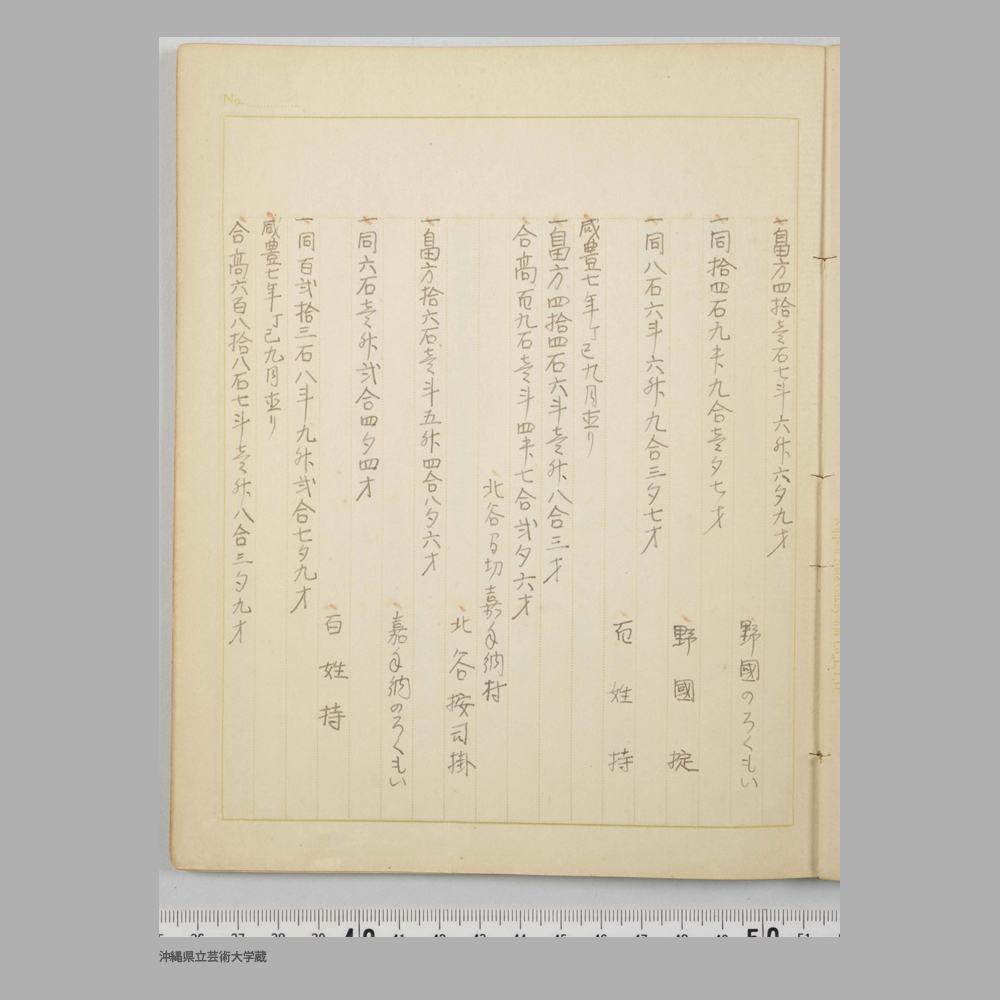 No.
一畠方四拾壱石七斗六升六夕九才
野國のろくもい
一同拾四石九斗九合壱夕七才
野國掟
一同八石六斗六升九合三夕七才
百姓持
咸豊七年丁巳九月並り
一畠方四拾四石六斗壱升八合三才
合高百九石壱斗四升七合弐夕六才
北谷間切嘉手納村
北谷按司掛
一畠方拾六石壱斗五升四合八夕六才
嘉手納のろくもい
一同六石壱升弐合四夕四才
百姓持
一同百弐拾三石八斗九升弐合七夕九才
咸豊七年丁巳九月並り
合高六百八拾八石七斗壱升八合三夕九才
沖縄県立芸術大学蔵